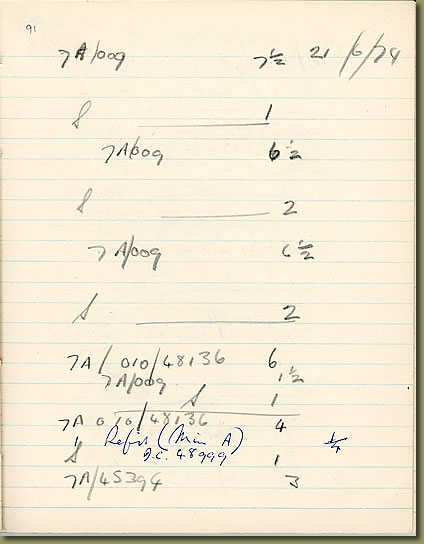 91
7A/009 7½ 21/6/74
S 1
7A/009 6½
S 2
7A/009 6½
S 2
7A/010/48136 6
7A/009 1½
S 1
7A 010/48136 4
(Main A) ¼
J.C. 48999
S 1
7A/45394 3